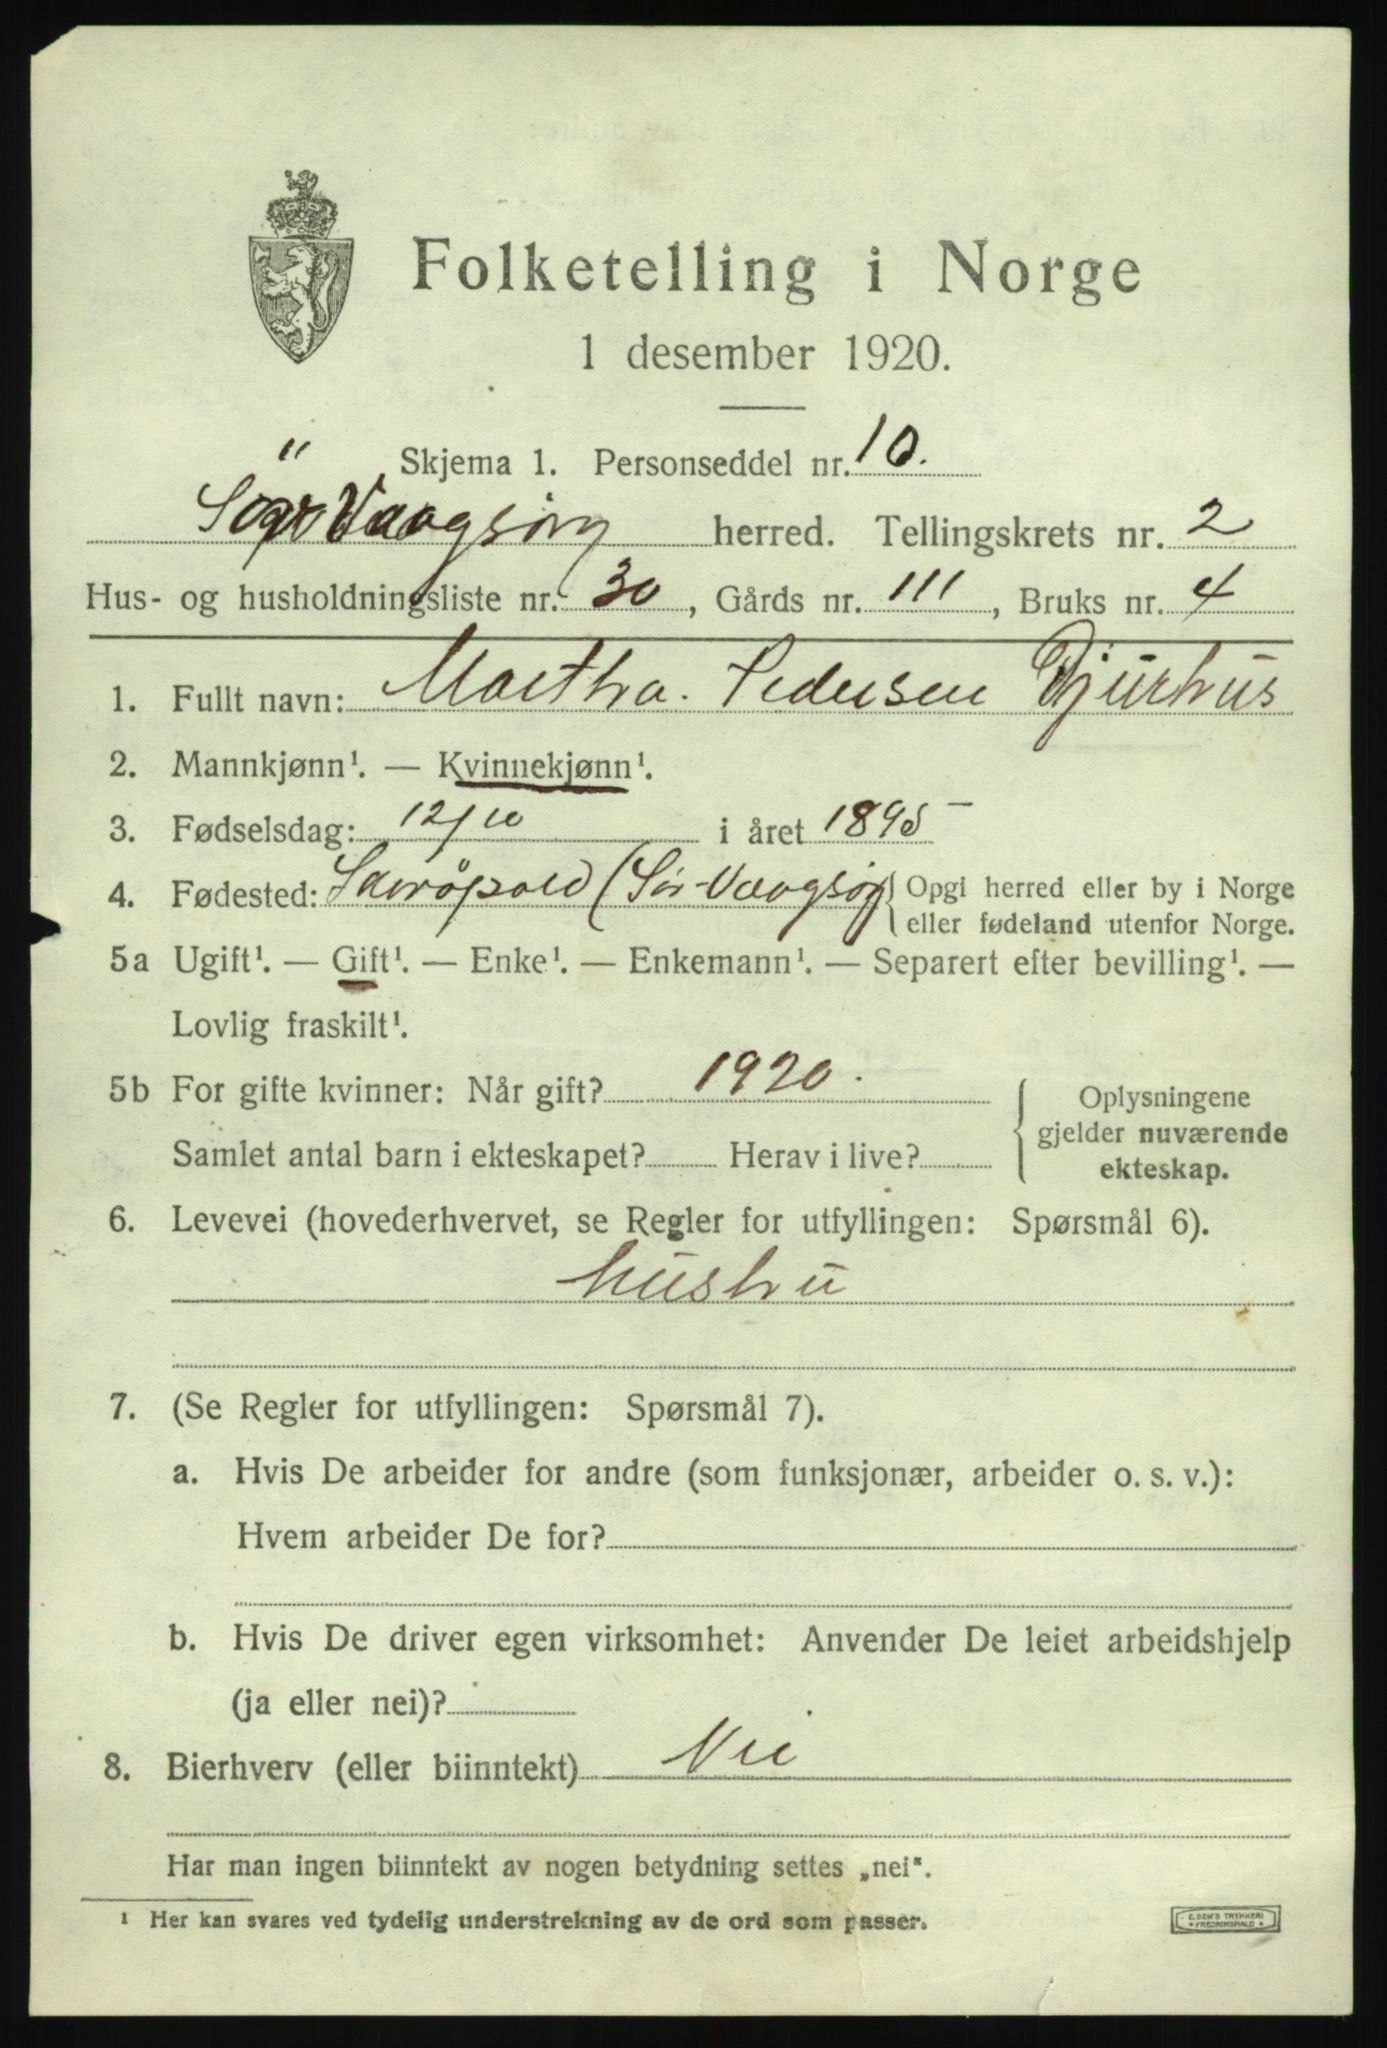 Folketelling i Norge
1 desember 1920.
Skjema 1. Personseddel nr. 10.
Sør Vaagsøy herred. Tellingskrets nr. 2
Hus- og husholdningsliste nr. 30, Gårds nr. 111, Bruks nr. 4
1. Fullt navn: Martha. Pedersen Djurhus
2. Mannkjønn¹. — Kvinnekjønn¹.
3. Fødselsdag: 12/10 i året 1895
4. Fødested: (Sør-Vaagsøy { Opgi herred eller by i Norge
eller fødeland utenfor Norge.
5a Ugift¹. — Gift¹. — Enke¹. — Enkemann¹. — Separert efter bevilling¹. —
Lovlig fraskilt¹.
5b For gifte kvinner: Når gift? 1920.
Samlet antal barn i ekteskapet? Herav i live?
Oplysningene
gjelder nuværende
ekteskap.
6. Levevei (hovederhvervet, se Regler for utfyllingen: Spørsmål 6).
hustru
7. (Se Regler for utfyllingen: Spørsmål 7).
a. Hvis De arbeider for andre (som funksjonær, arbeider o. s. v.):
Hvem arbeider De for?
b. Hvis De driver egen virksomhet: Anvender De leiet arbeidshjelp
(ja eller nei)?
8. Bierhverv (eller biinntekt) Nei
Har man ingen biinntekt av nogen betydning settes „nei".
¹ Her kan svares ved tydelig understrekning av de ord som passer.
E. SEM'S TRYKKERI
• FREDRIKSHALD •